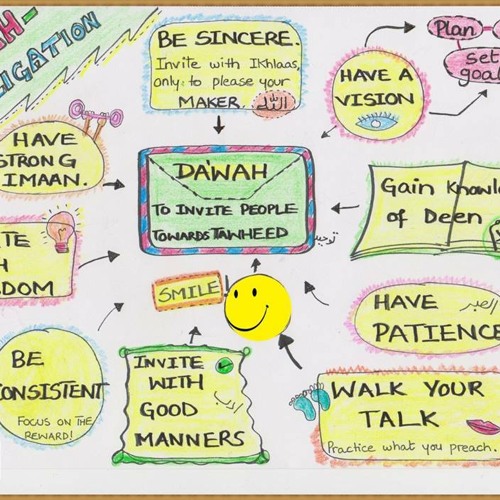 H-
LIGATION
BE SINCERE.
Invite with Ikhlaas,
only: to please your
MAKER. الله
HAVE A
VISION
Plan
set
goal
HAVE
STRONG
IMAAN.
DA'WAH
TO INVITE PEOPLE
TOWARDS TAWHEED
توحيد
Gain Knowle
of Deen
ITE
TH
DOM
SMILE!
HAVE الصبر
PATIENCE
BE
CONSISTENT
FOCUS ON THE
REWARD!
INVITE
WITH
GOOD
MANNERS
WALK YOUR
TALK
Practice what you preach.